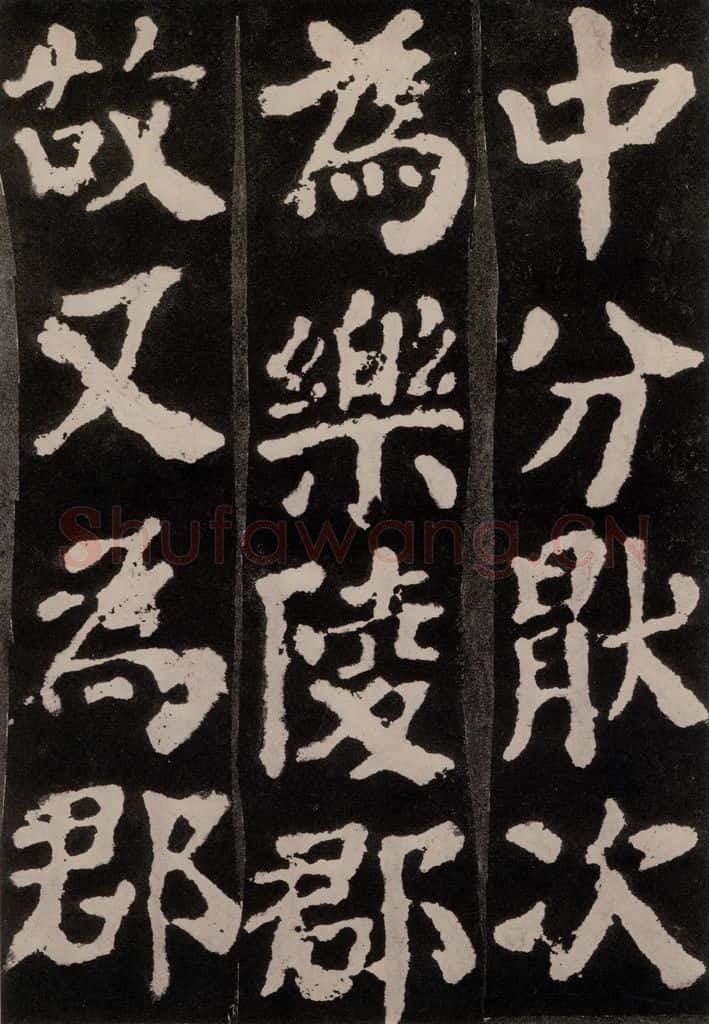 中分猒次
為樂陵郡
故又為郡
Shufawang.CN